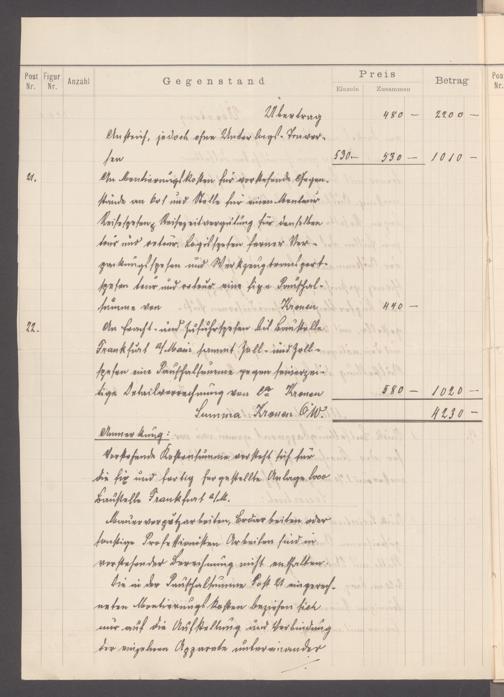 Post Nr. Figur Nr. Anzahl Gegenstand Preis Einzeln Zusammen Betrag
Übertrag 480 – 2200 –
Anstrich, jedoch ohne Unterlags-Traver-
sen 530 – 530 – 1010 –
21. An Montierungskosten für vorstehende Gegen-
stände an Ort und Stelle für einen Monteur
Reisespesen, Reisezeitvergütung für denselben
tour und retour, Logisspesen ferner Ver-
packungsspesen und Werkzeugtransport-
spesen tour und retour eine fixe Pauschal-
summe von Kronen 440 –
22. An Fracht- und Zufuhrspesen bis Baustelle
Frankfurt a/Main sammt Zoll- und Zoll-
spesen eine Pauschalsumme gegen seinerzei-
tige Detailverrechnung von ca Kronen 580 – 1020 –
Summa Kronen Ö.W. 4230 –
Anmerkung:
Vorstehende Kostensumme versteht sich für
die fix und fertig hergestellte Anlage loco
Baustelle Frankfurt a/M.
Maurerverputzarbeiten, Erdarbeiten oder
sonstige Professionisten Arbeiten sind in
vorstehender Berechnung nicht enthalten.
Die in der Pauschalsumme Post 21 eingerech-
neten Montierungskosten beziehen sich
nur auf die Aufstellung und Verbindung
der einzelnen Apparate untereinander